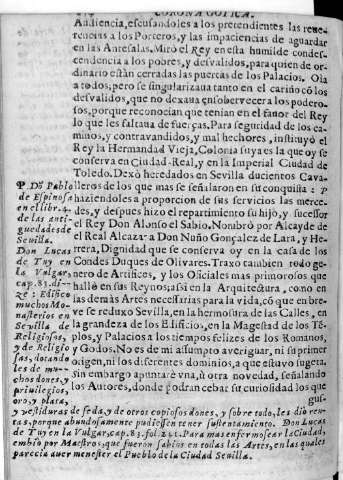 CORONA GOTICA.
Audiencia, escusandoles a los pretendientes las reue-
rencias a los Porteros, y las impaciencias de aguardar
en las Antesalas. Mirò el Rey en esta humilde condes-
cendencia a los pobres, y desvalidos, para quien de or-
dinario estàn cerradas las puertas de los Palacios. Oìa
a todos, pero se singularizaua tanto en el cariño cõ los
desvalidos, que no dexaua ensobervecer a los podero-
sos, porque reconocian que tenian en el fauor del Rey
lo que les faltaua de fuerças. Para seguridad de los ca-
minos, y contravandidos, y mal hechores, instituyò el
Rey la Hermandad Vieja, Colonia suya es la que oy se
conserva en Ciudad-Real, y en la Imperial Ciudad de
Toledo. Dexò heredados en Sevilla ducientos Cava-
lleros de los que mas se señalaron en su conquista: P
haziendoles a proporcion de sus servicios las merce-
des, y despues hizo el repartimiento su hijo, y sucessor
el Rey Don Alonso el Sabio. Nombrò por Alcayde de
el Real Alcazar a Don Nuño Gonçalez de Lara, y He-
rrera, Dignidad que se conserva oy en la casa de los
Condes Duques de Olivares. Traxo tambien todo ge-
nero de Artifices, y los Oficiales mas primorosos que
hallò en sus Reynos, assi en la Arquitectura, como en
las demàs Artes necessarias para la vida, cõ que en bre-
ve se reduxo Sevilla, en la hermosura de las Calles, en
la grandeza de los Edificio, en la Magestad de los Tẽ-
plos, y Palacios a los tiempos felizes de los Romanos,
y Godos. No es de mi assumpto averiguar, ni su primer
origen, ni los diferentes dominios, a que estuvo sugeta,
sin embargo apuntarè vna, ù otra novedad, señalando
los Autores, donde podràn cebar su curiosidad los que
gus-
P. Dõ Pablo
de Espinosa
en el libr. 4.
de las anti-
guedades de
Sevilla.
Don Lucas
de Tuy en
la Vulgar,
cap. 83. di-
ze: Edificò
muchos Mo-
nasterios en
Sevilla de
Religiosos,
y de Religio
sas, dotando
les de mu-
chos dones, y
privilegios,
oro, y plata,
y vestiduras de seda, y de otros copiosos dones, y sobre todo, les diò ren-
tas, porque abundosamente pudiessen tener sustentamiento. Don Lucas
de Tuy en la Vulgar, cap. 83. fol. 241. Para mas enfermosear la Ciudad,
embio por Maestros, que fueron sabios en todas las Artes, en las quales
parecia auer menester el Pueblo de la Ciudad Sevilla.